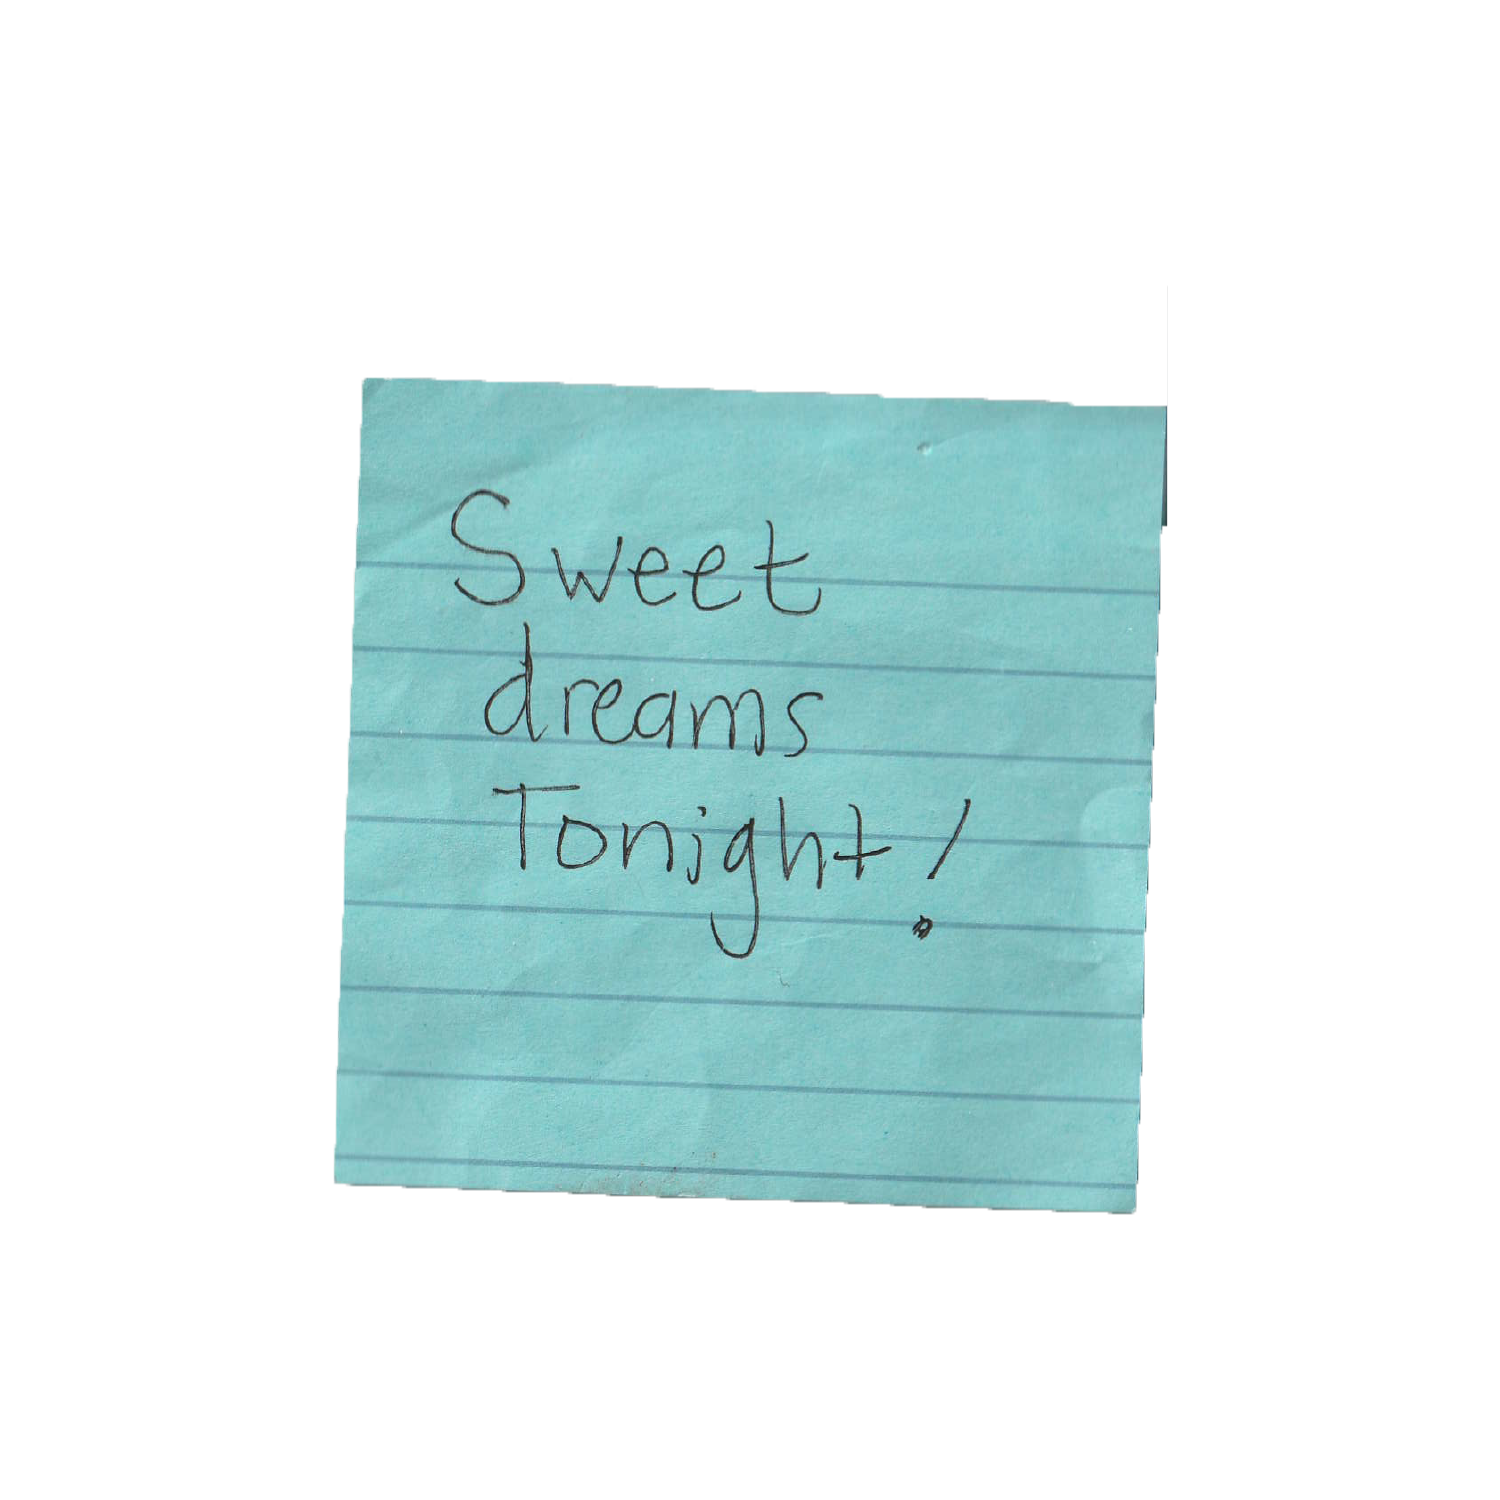 Sweet
dreams
Tonight!